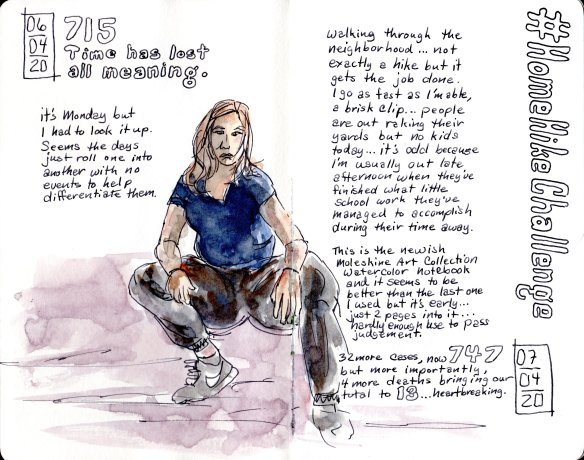 06
04
20
715
Time has lost
all meaning.
it's Monday but
I had to look it up.
Seems the days
just roll one into
another with no
events to help
differentiate them.
walking through the
neighborhood... not
exactly a hike but it
gets the job done.
I go as fast as I'm able,
a brisk clip... people
are out raking their
yards but no kids
today... it's odd because
I'm usually out late
afternoon when they've
finished what little
school work they've
managed to accomplish
during their time away.
This is the newish
Moleskine Art Collection
watercolor notebook
and it seems to be
better than the last one
I used but it's early...
just 2 pages into it...
hardly enough use to pass
judgement.
32 more cases, now 747
but more importantly,
4 more deaths bringing our
total to 13...heartbreaking.
#HomeHikeChallenge
07
04
20